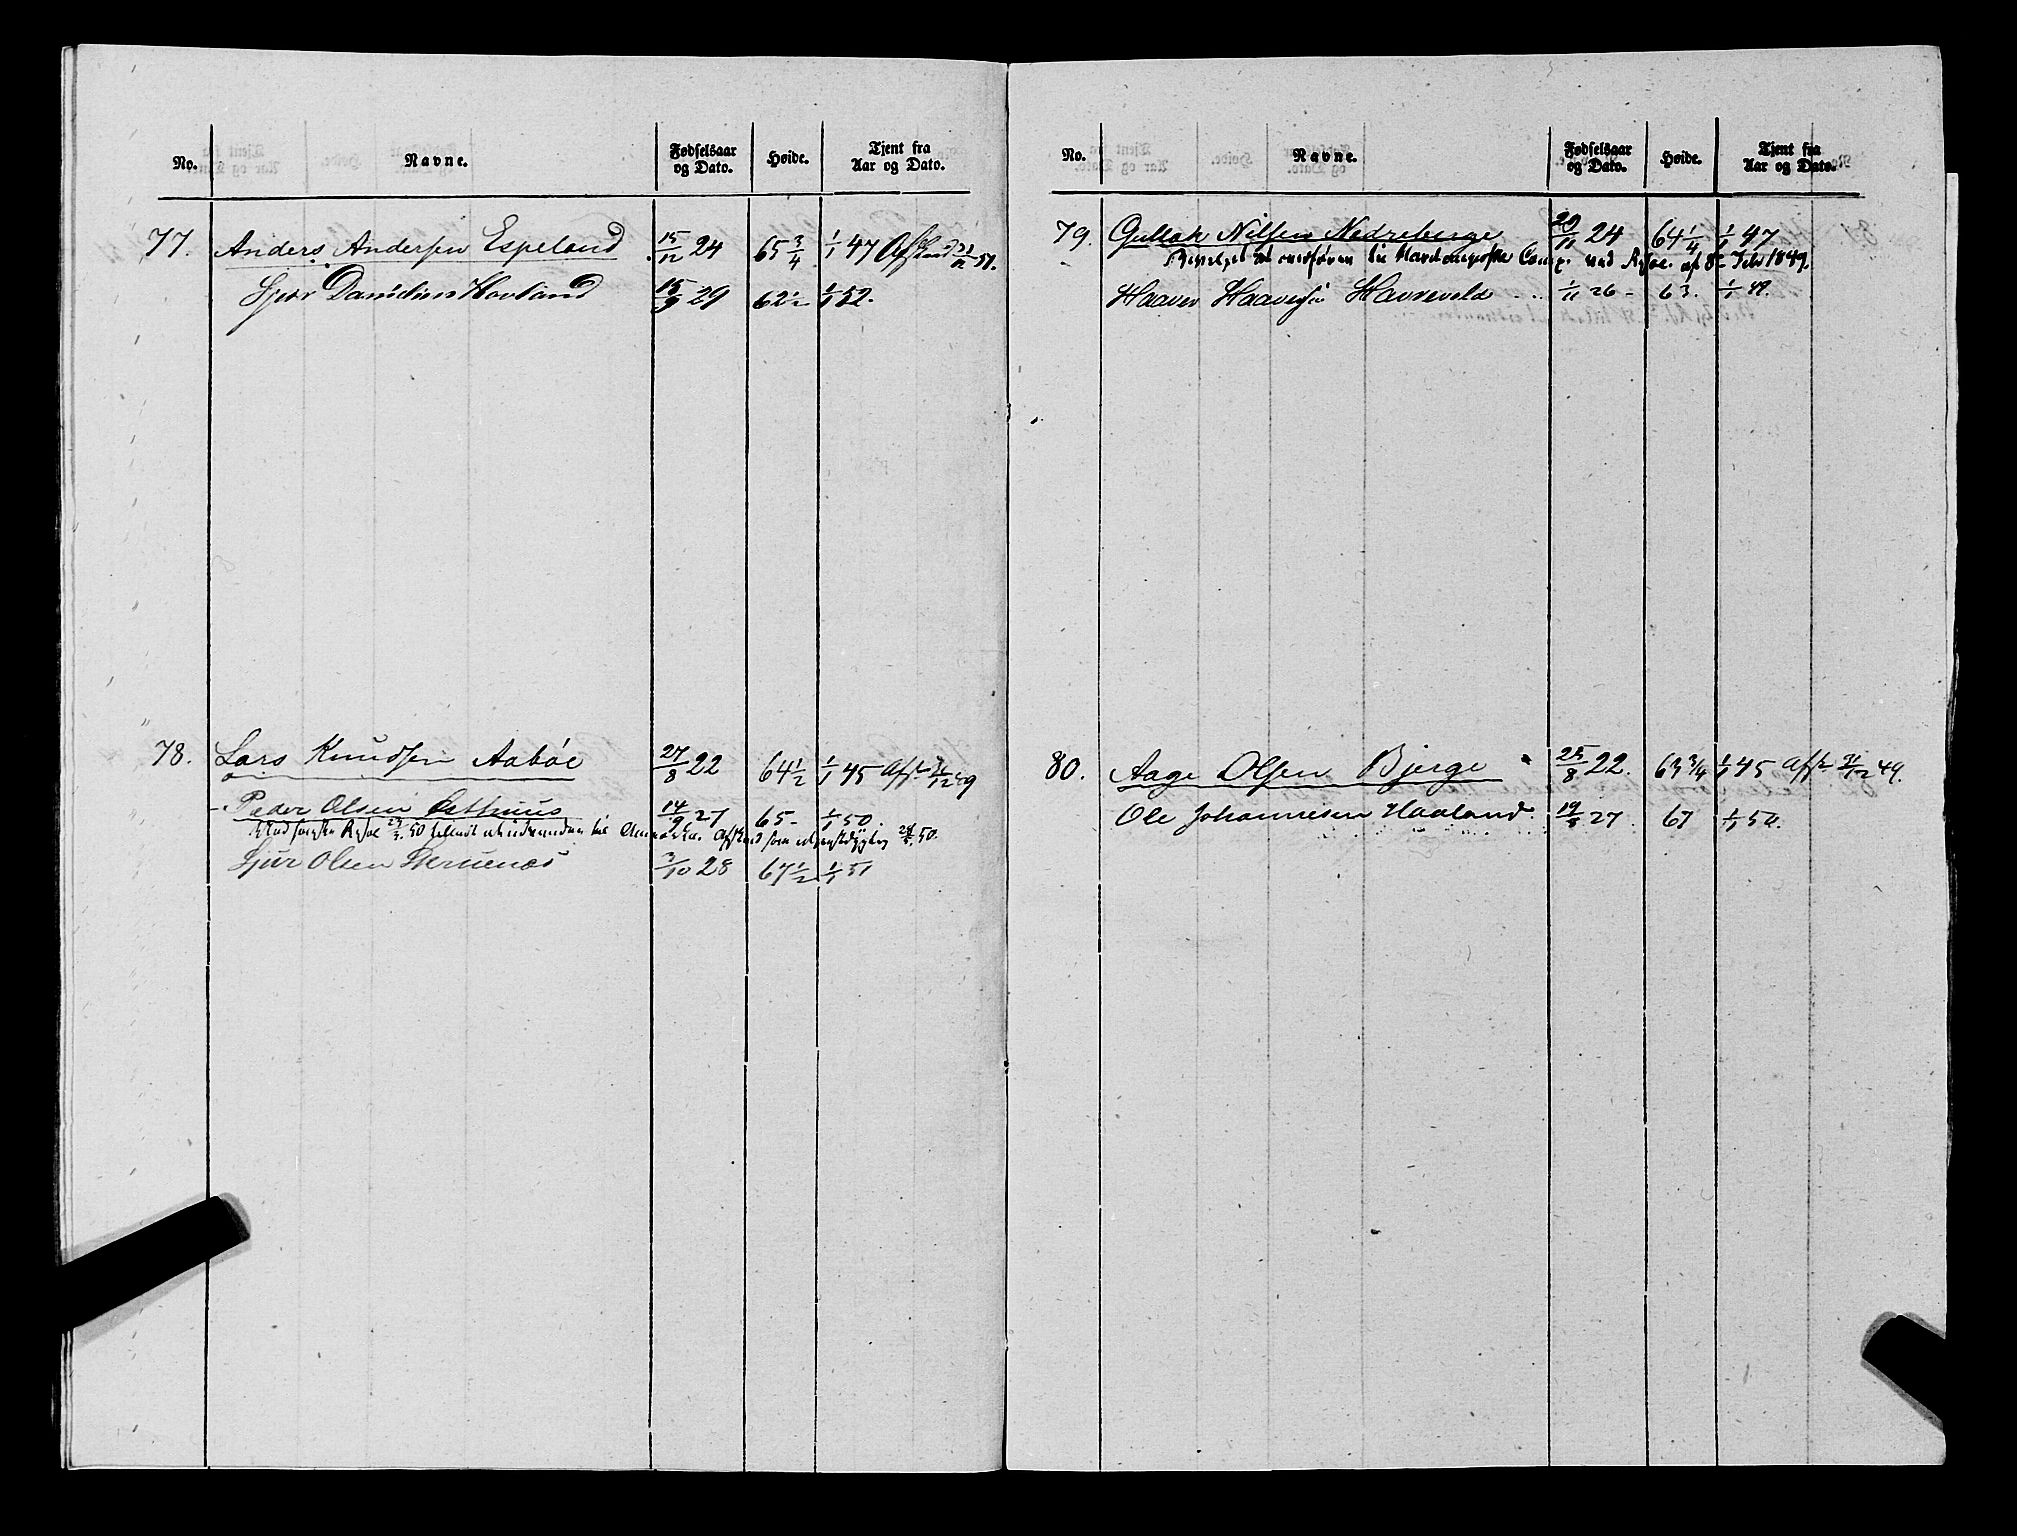 No. Navne. Fødselsaar og Dato. Høide. Tjent fra Aar og Dato.
77. Anders Andersen Espeland 15/12 24 65 3/4 1/1 47 Afskeed 31/12 51.
Sjur Danielsen Hovland 15/9 29 62 1/2 1/1 52.
78. Lars Knudsen Aabøe 27/8 22 64 1/2 1/1 45 Afsk 31/12 49
Peder Olsen 14/9 27 65 - 1/1 50.
50 til Afskeed som 50.
Sjur Olsen 3/10 28 67 1/2 1/1 51
No. Navne. Fødselsaar og Dato. Høide. Tjent fra Aar og Dato.
79. Gullak Nilsen Nedreberge 20/11 24 64 1/4 1/1 47
Comp. ved af 8 Febr 1849.
Haaver Haaversen Havrevold 1/11 26 - 63. 1/1 49.
80. Aage Olsen Bjerge 25/8 22. 63 3/4 1/1 45 Afsk 31/12 49.
Ole Johannesen Haaland 27. 67 1/1 50.